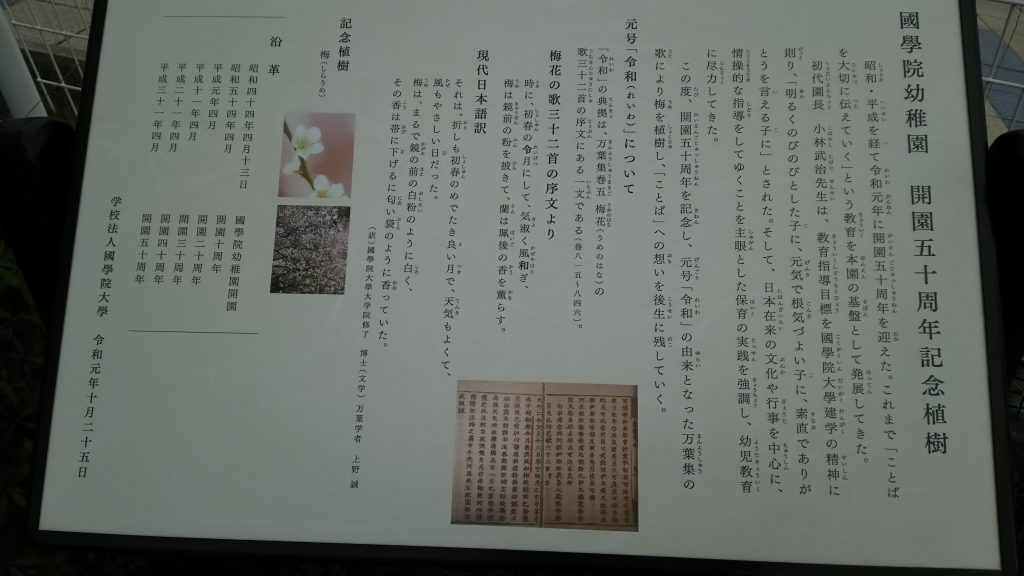 國學院幼稚園 開園五十周年記念植樹
昭和・平成を経て令和元年に開園五十周年を迎えた。これまで「ことば
を大切に伝えていく」という教育を本園の基盤として発展してきた。
初代園長 小林武治先生は、教育指導目標を國學院大學建学の精神に
則り、「明るくのびのびとした子に、元気で根気づよい子に、素直でありが
とうを言える子に」とされた。そして、日本在来の文化や行事を中心に、
情操的な指導をしてゆくことを主眼とした保育の実践を強調し、幼児教育
に尽力してきた。
この度、開園五十周年を記念し、元号「令和」の由来となった万葉集の
歌により梅を植樹し、「ことば」への想いを後生に残していく。
元号「令和(れいわ)」について
「令和」の典拠は、万葉集巻五、梅花(うめのはな)の
歌三十二首の序文にある一文である(巻八一五〜八四六)。
梅花の歌三十二首の序文より
時に、初春の令月にして、気淑く風和ぎ、
梅は鏡前の粉を披きて、蘭は珮後の香を薫らす。
現代日本語訳
それは、折しも初春のめでたき良い月で、天気もよくて、
風もやさしい日だった。
梅は、まるで鏡の前の白粉のように白く、
その香は帯に下げるに匂い袋のように香っていた。
(訳)國學院大學大学院修了 博士(文学) 万葉学者 上野 誠
記念植樹
梅(しらうめ)
沿 革
昭和四十四年四月十三日 國學院幼稚園開園
昭和五十四年四月 開園十周年
平成元年四月 開園二十周年
平成十一年四月 開園三十周年
平成二十一年四月 開園四十周年
平成三十一年四月 開園五十周年
学校法人國學院大學 令和元年十月二十五日